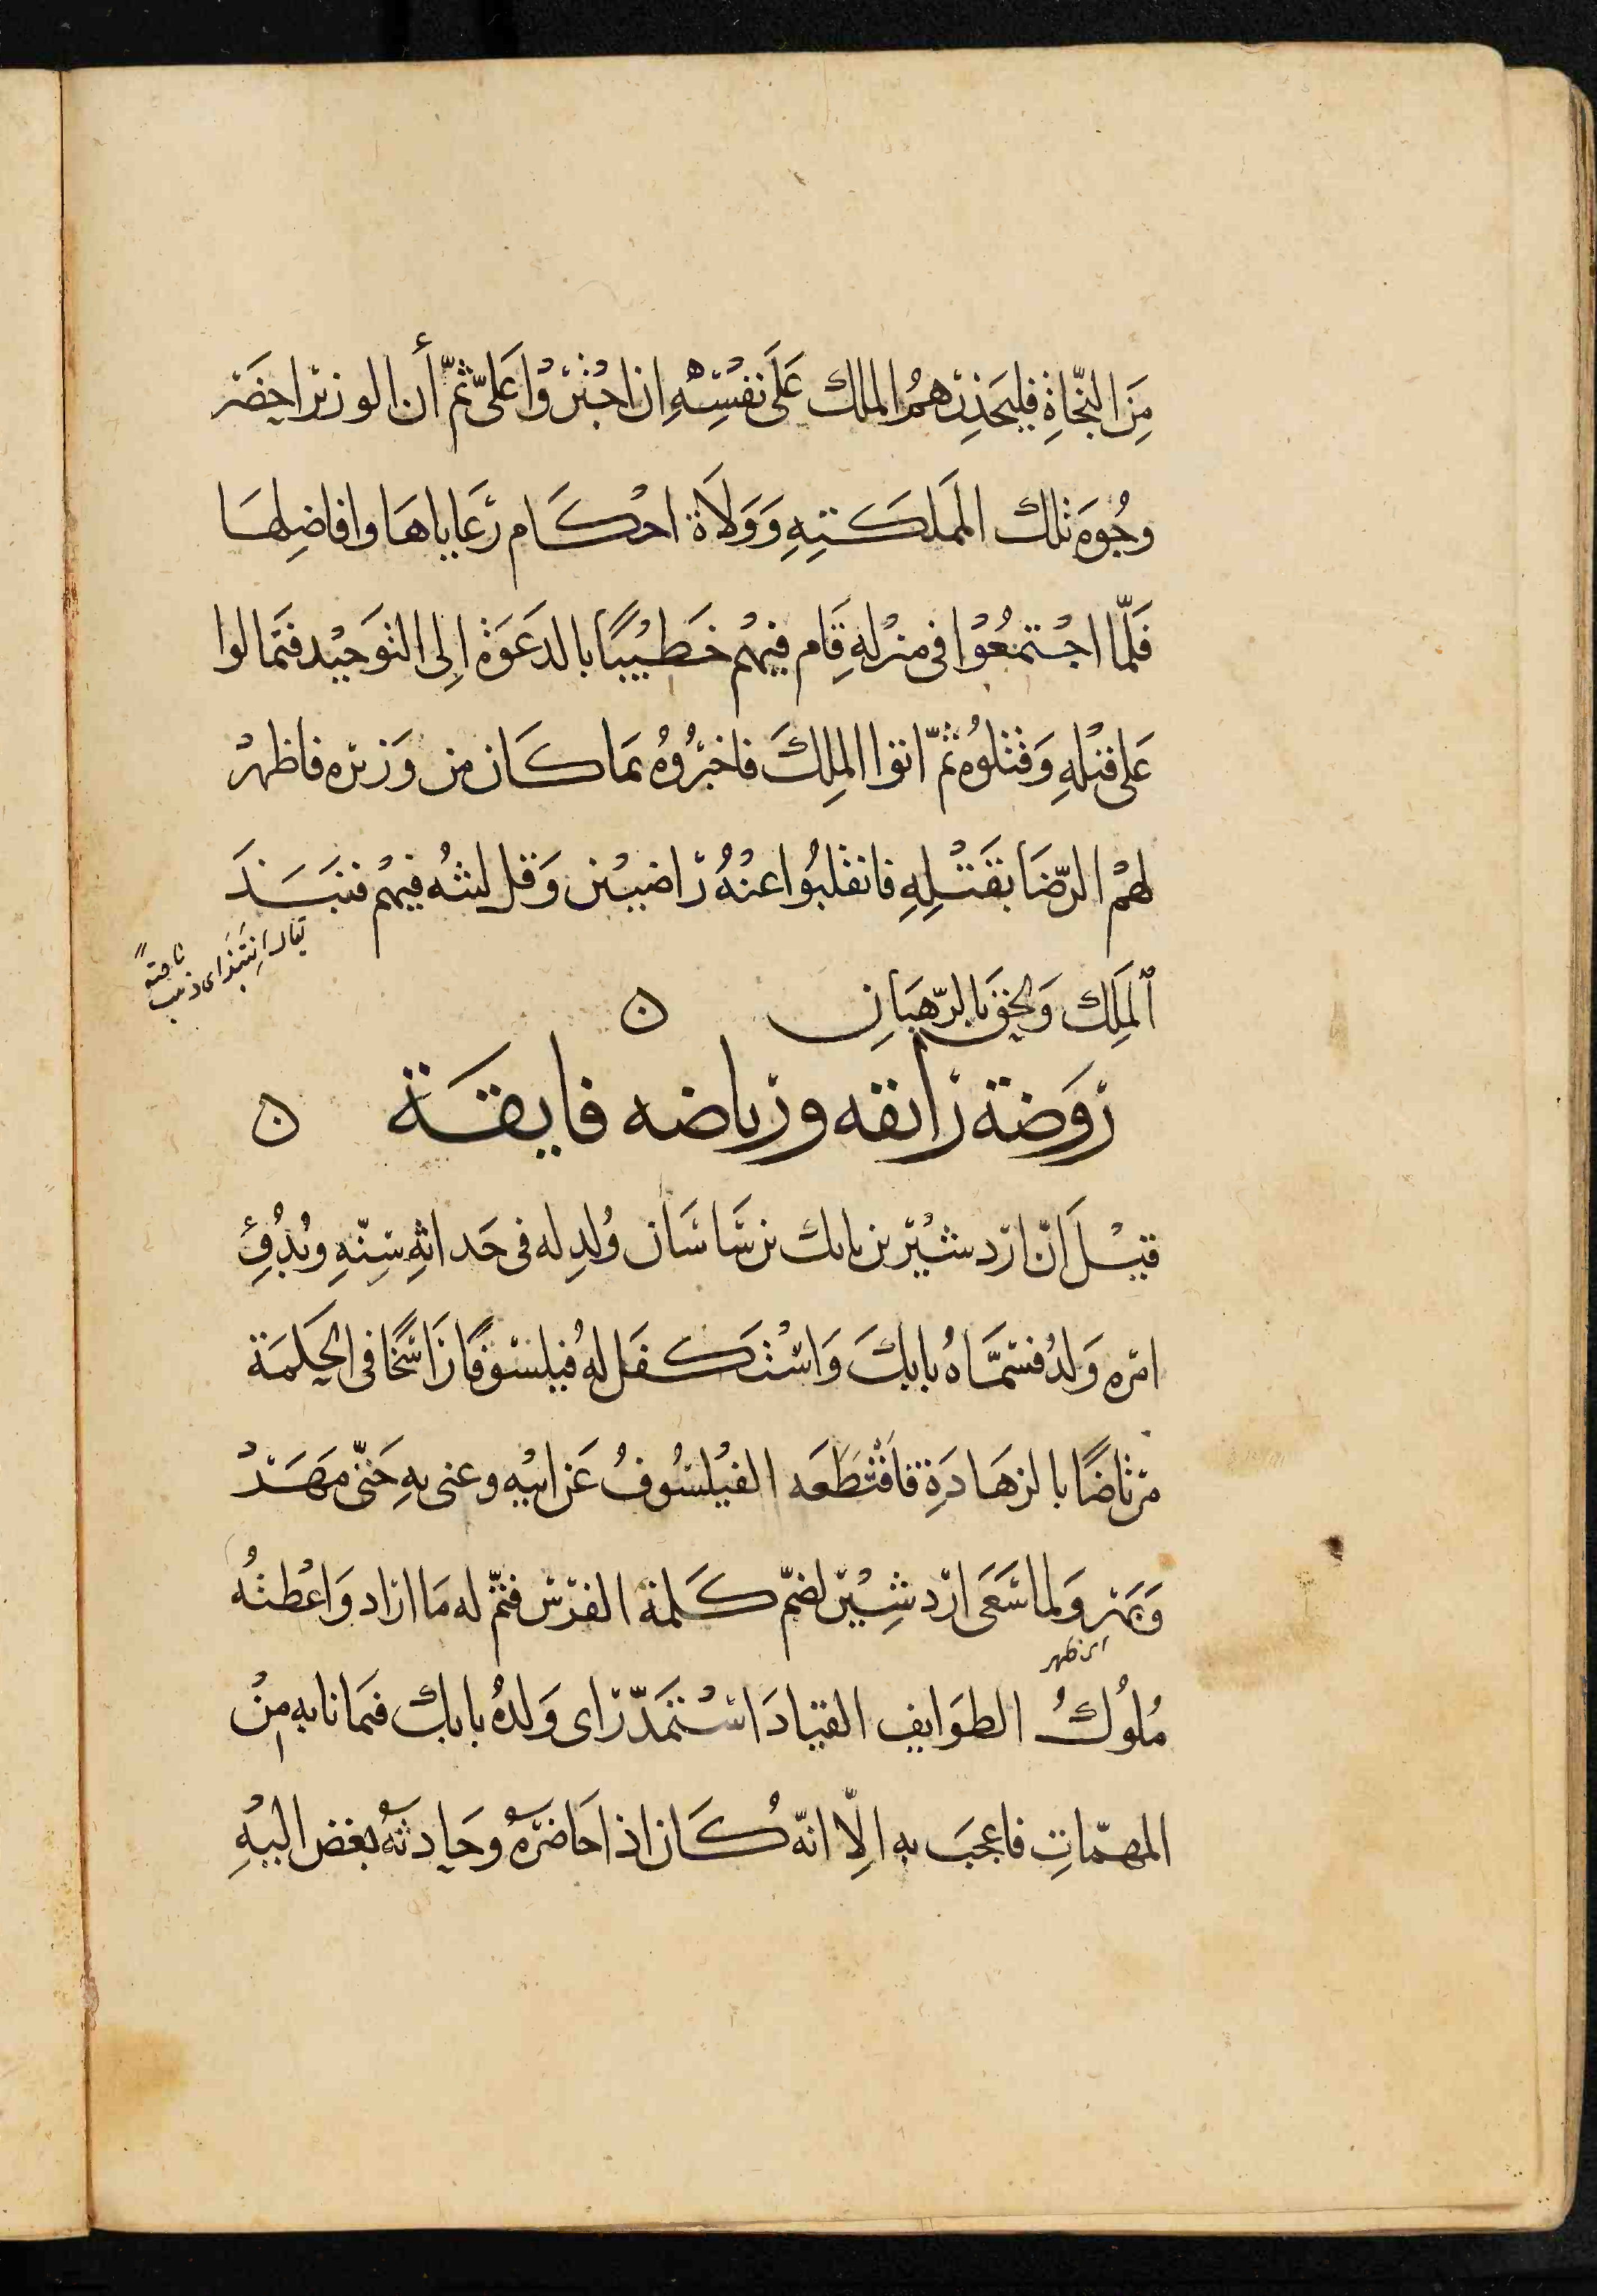 مِنَ النَّجَاةِ فليحَذِرْهمُ الملك عَلَى نفسِهِ ان اجْترَوْا عَلىّ ثمّ أن الوزير احضَر
وجُوهَ تلك المَملَكَتِهِ وَوَلَاة احْكَام رَعَايَاهَا وافاضِلِهَا
فَلمّا اجْتمعُوْا فى منزلهِ قَام فيهم خَطِيْبًا بالدَعَوَة اِلى التوَحيْد فتمالوا
عَلى قتْلهِ وَقتلوُه ثمّ اتوا الملِكَ فاخبرُوُه بمَا كَان من وَزيره فاظهرْ
لهمْ الرّضَا بقَتْلِهِ فانقلبُوا عنْهُ رَاضيين وَقل لبثه فيهم فنبَذَ
يقال انتَبَذَ اى ذهب
ناحيَةً
اَلمَلِك وَلحِقَ بالرّهبَانِ ن
رَوَضة رَائقه ورياضه فايقَة ن
قيْل اَنّ ارْدشيْر بن بابك بن سَاسَان وُلدِ له فى حَداثِهِ سِنّهِ وبُدُؤِ
امْره وَلدُ فسَمَّاهُ بابك وَاسْتكفَل لهُ فيلسوفًا رَاسِخًا فى الحكمَة
مرتاضًا بالزهَادَةِ فاقتطَعَه الفيْلسُوفُ عَن ابيْهِ وعنى بهِ حَتّى مَهَرْ
وَبَهَر وَلما سَعَى ارْدشِيْر لضمّ كَلمة الفرْس فتمّ له مَا ارَاد وَاعْطتهُ
مُلوُكُ الطوَايف القيَاد اسْتمَدّ رَاى وَلدهُ بابك فيمَا نابه مِنْ
المهمّاتِ فاعجبَ به اِلّا انّهُ كَان اذا حَاضرَهُ وحَادثهُ بغض اليْهِ